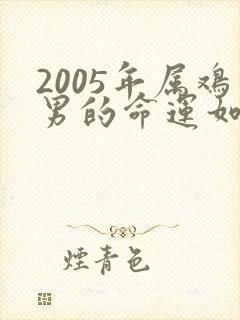 2005年属鸡
男的命运如
煙青色